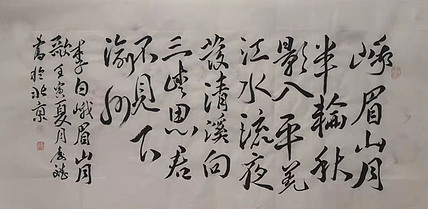 峨眉山月
半轮秋
影入平羌
江水流夜
发清溪向
三峡思君
不见下
渝州
李白峨眉山月
歌壬寅夏月
书于北京